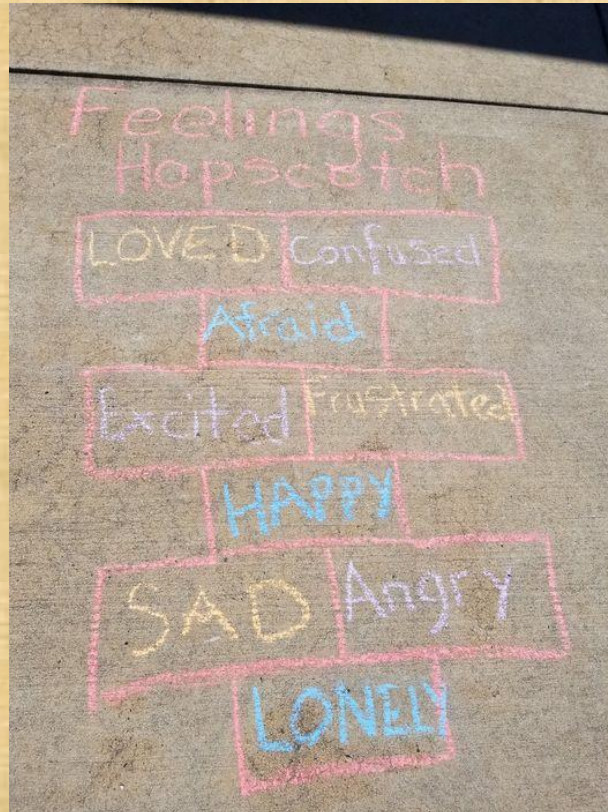 Feelings
Hopscotch
LOVED Confused
Afraid
Excited Frustrated
HAPPY
SAD Angry
LONELY